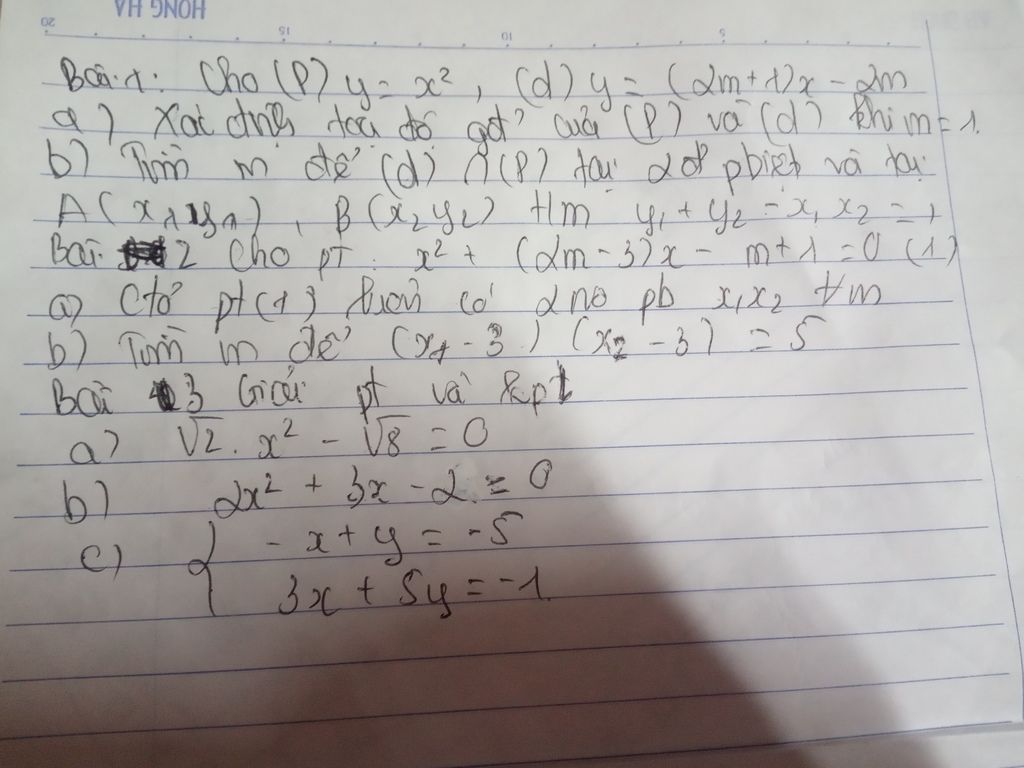 HONG HA
20 15 10 5
Bài 1: Cho (P) y = x², (d) y = (2m+1)x - 2m
a) Xác định tọa độ gđ' của (P) và (d) khi m = 1.
b) Tìm m để (d) ∩ (P) tại 2đ' pbiệt và tại
A(x₁ y₁), B(x₂ y₂) t/m y₁ + y₂ - x₁ x₂ = 1
Bài 2 Cho pt x² + (2m - 3)x - m + 1 = 0 (1)
a) Ctỏ pt (1) luôn có 2 no pb x₁ x₂ ∀m
b) Tìm m để (x₁ - 3) (x₂ - 3) = 5
Bài 3 Giải pt và hpt
a) √2. x² - √8 = 0
b) 2x² + 3x - 2 = 0
c) { - x + y = -5
3x + 5y = -1.